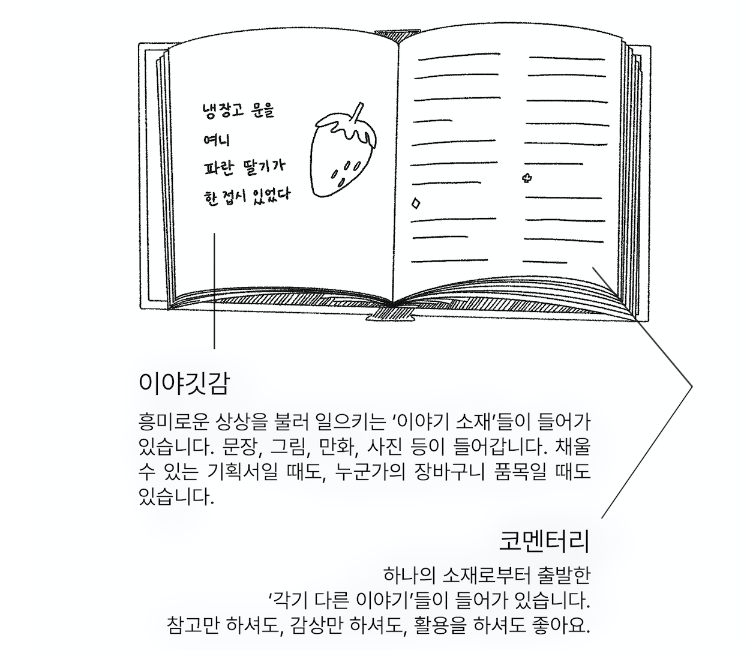 냉장고 문을
여니
파란 딸기가
한 접시 있었다
이야깃감
흥미로운 상상을 불러 일으키는 ‘이야기 소재’들이 들어가
있습니다. 문장, 그림, 만화, 사진 등이 들어갑니다. 채울
수 있는 기획서일 때도, 누군가의 장바구니 품목일 때도
있습니다.
코멘터리
하나의 소재로부터 출발한
‘각기 다른 이야기’들이 들어가 있습니다.
참고만 하셔도, 감상만 하셔도, 활용을 하셔도 좋아요.